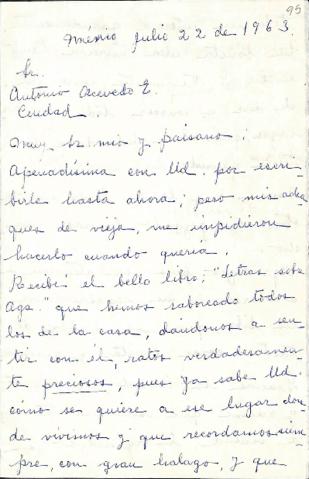 95
México julio 22 de 1963.
Sr.
Antonio Acevedo E.
Ciudad.
Muy Sr mío y paisano:
Apenadísima con Ud. por escri-
birle hasta ahora; pero mis acha-
ques de vieja, me impidieron
hacerlo cuando quería.
Recibí el bello libro; "Letras sobre
Ags." que hemos saboreado todos
los de la casa, dandonos a sen-
tir con él, ratos verdaderamen-
te preciosos, pues ya sabe Ud.
cómo se quiere a ese lugar don-
de vivimos y que recordamos siem
pre, con gran halago, y que